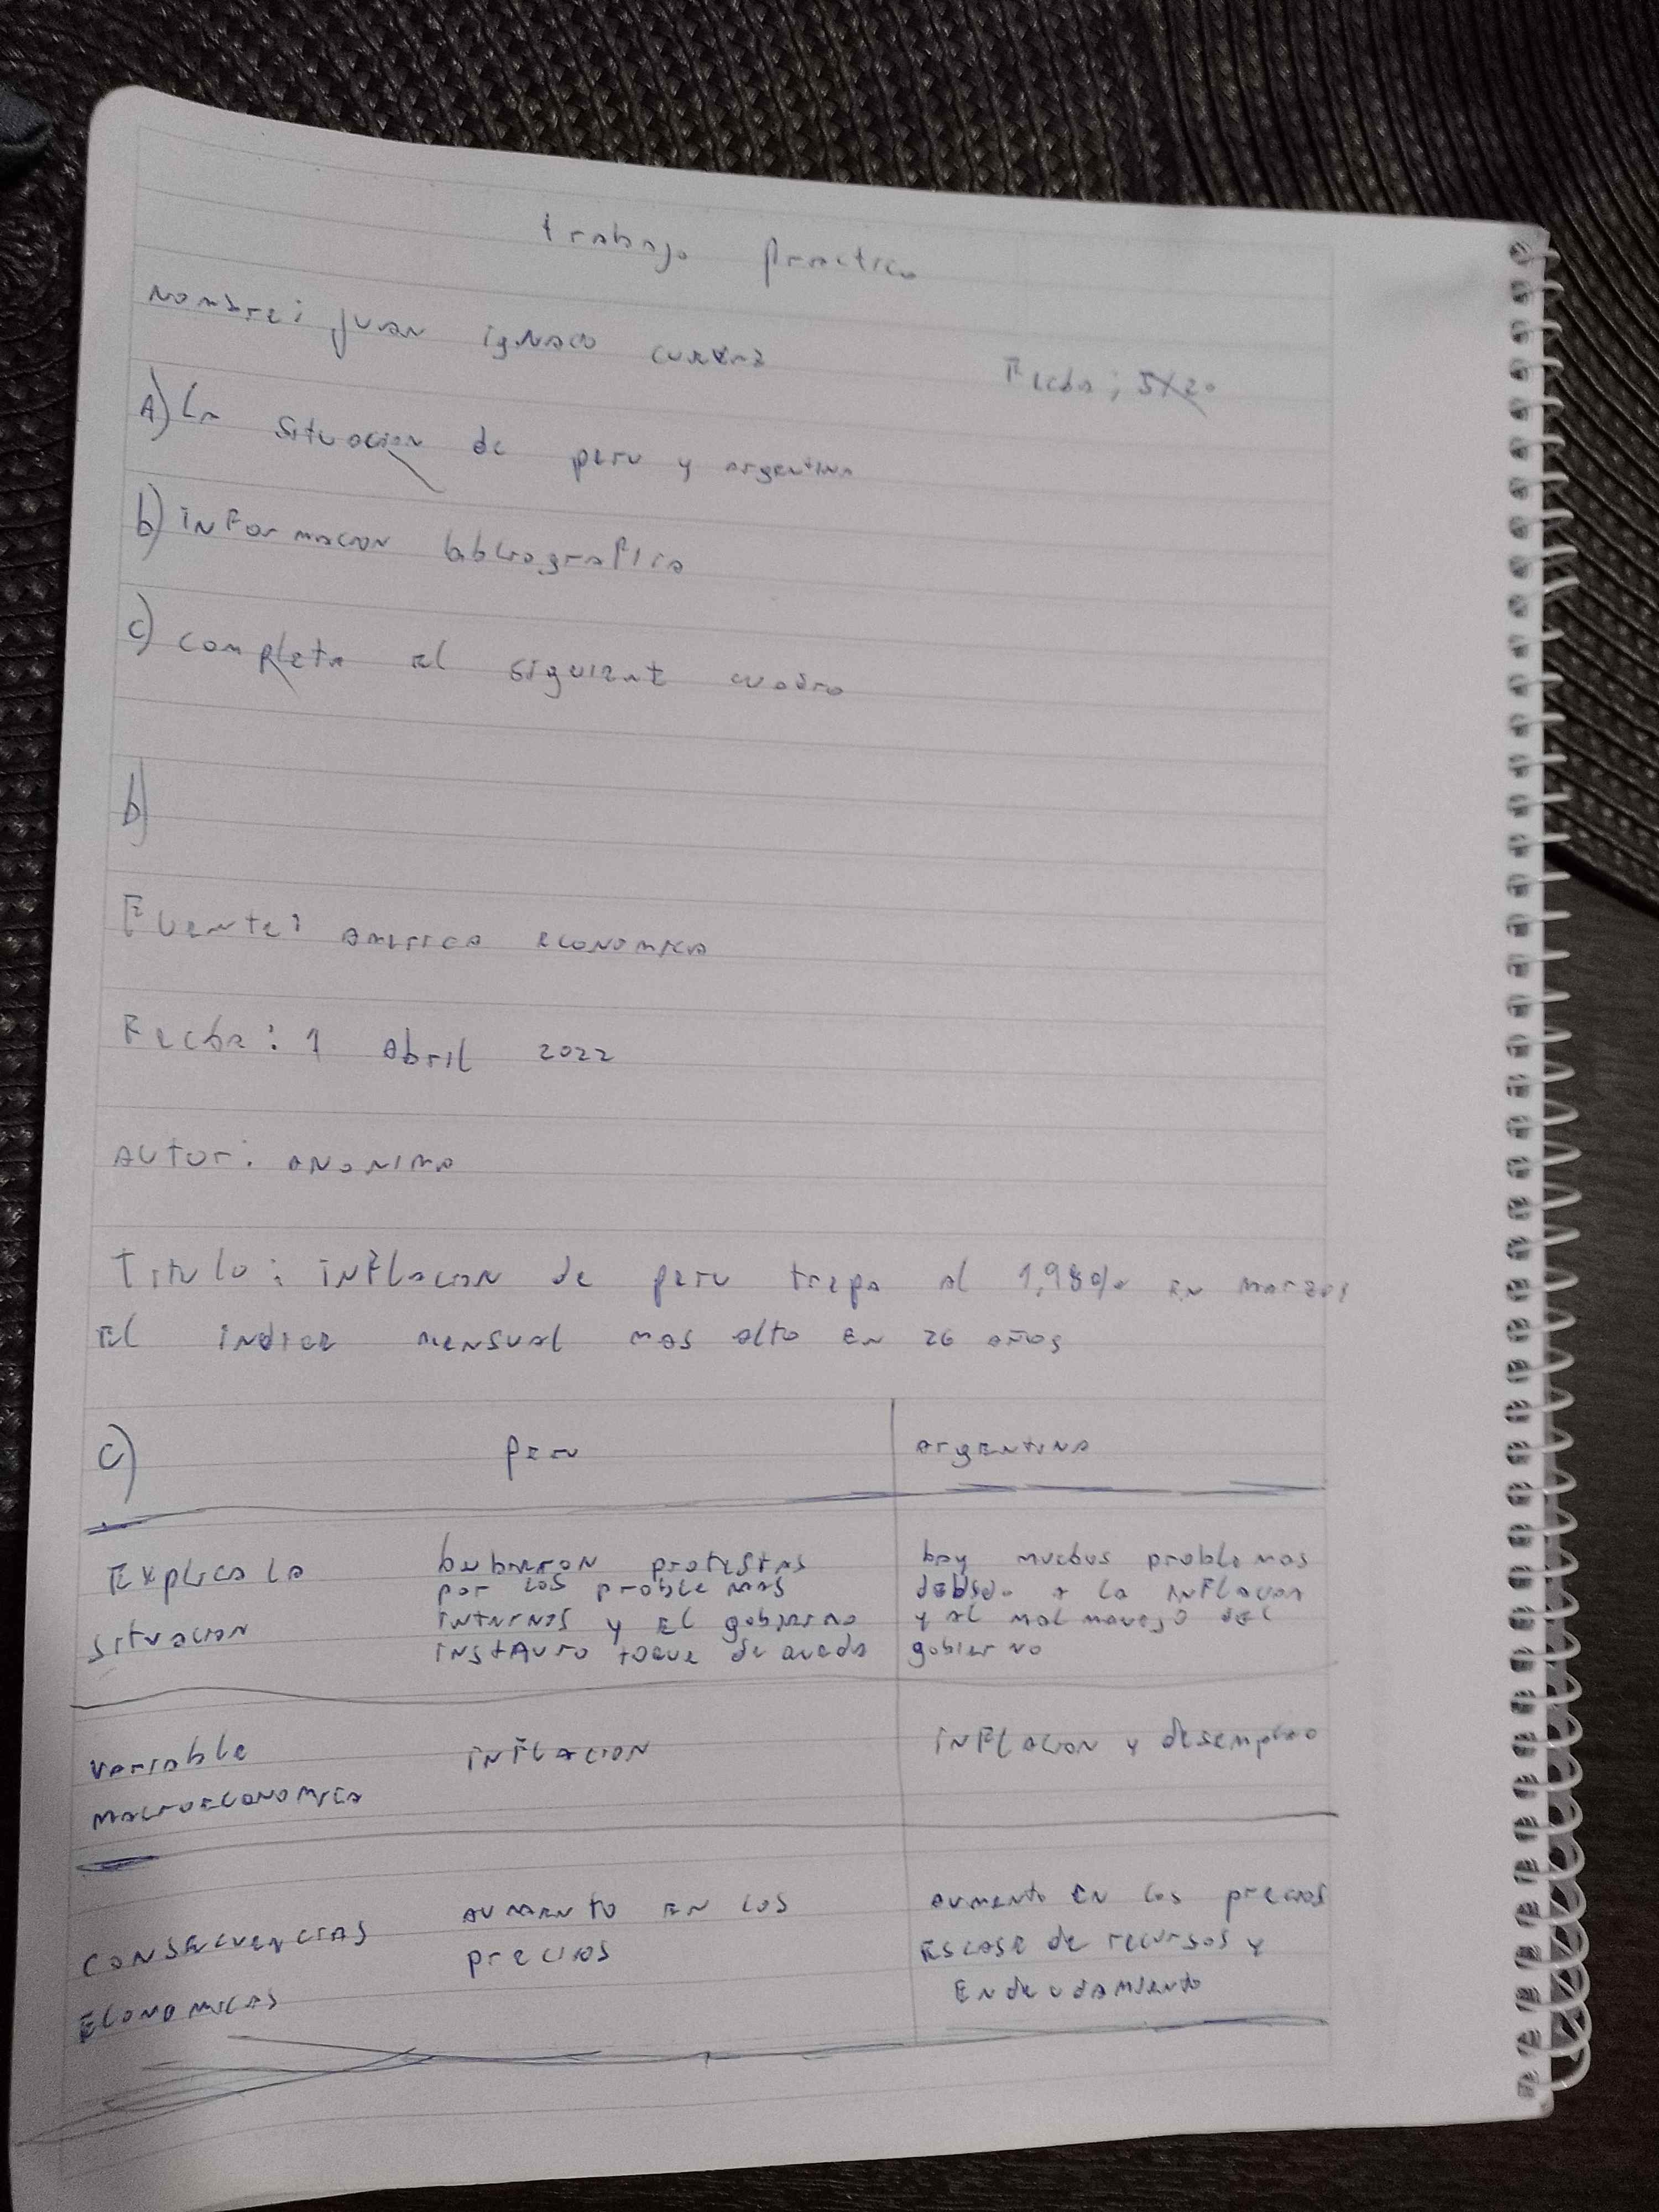 trabajo practico
Nombre: Juan ignacio
Fecha:
A) La situacion de peru y argentina
b) informacion bibliografica
c) completa el siguiente cuadro
b)
Fuente: america economica
Fecha: 1 abril 2022
autor: anonimo
Titulo: inflacion de peru trepa al 1,98% en marzo,
El indice mensual mas alto en 26 años
c) peru argentina
Explica la situacion
hubieron protestas
por los problemas
internos y el gobierno
instauro toque de queda
hay muchos problemas
debido a la inflacion
y al mal manejo del
gobierno
variable
macroeconomica
inflacion
inflacion y desempleo
consecuencias
Economicas
aumento en los
precios
aumento en los precios
Escase de recursos y
Endeudamiento